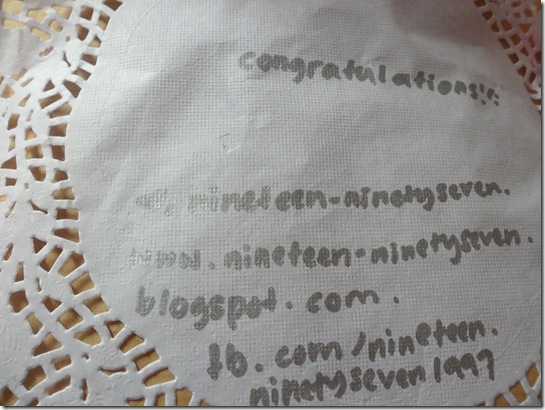 congratulations!!
nineteen-ninetyseven.
www.nineteen-ninetyseven.
blogspot.com.
fb.com/nineteen.
ninetyseven1997